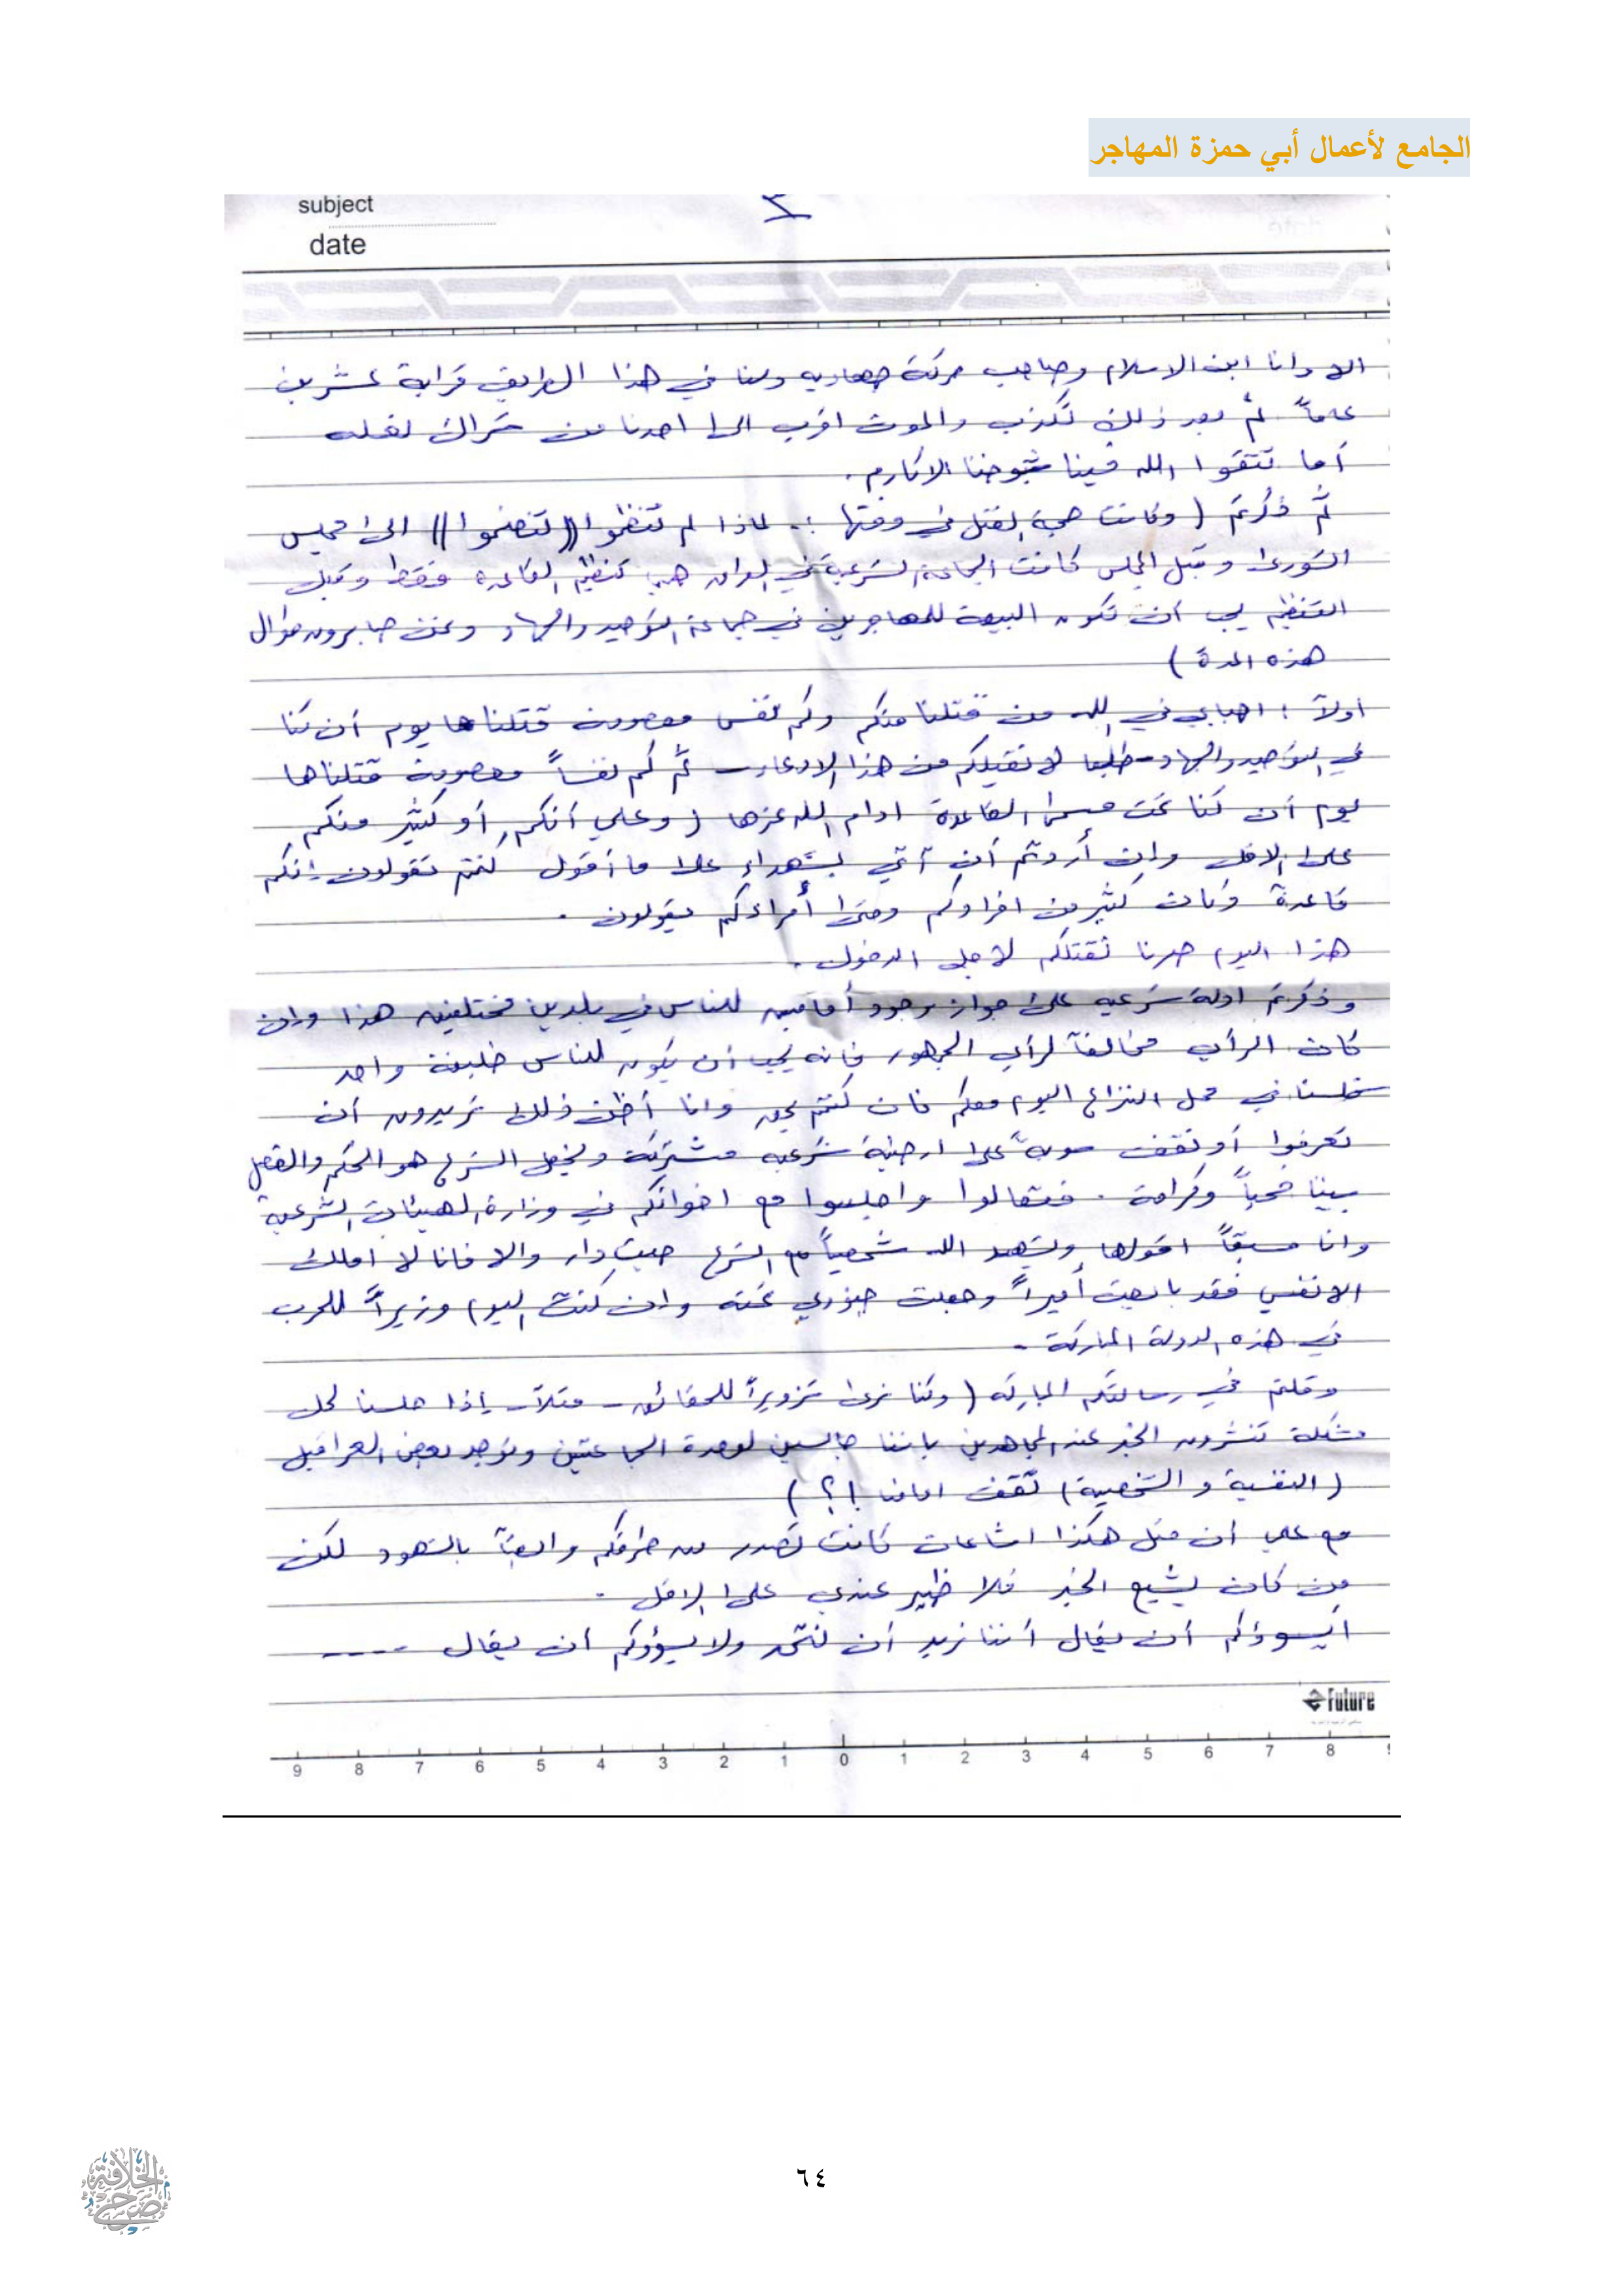 الجامع لأعمال أبي حمزة المهاجر
subject
٤
date
وانا ابن الاسلام وصاحب حركة جهاديه ولنا في هذا الطريق قرابة عشرين
عاماً ثم بعد ذلك نكذب والموت اقرب الى احدنا من شراك نعله
أما تتقوا الله فينا شيوخنا الاكارم .
ثم ذكرتم ( وكانت حجة القتل في وقتها :. لماذا لم تنظموا ((تنضموا)) الى مجلس
الشورى وقبل المجلس كانت الجماعة الشرعية في العراق هي تنظيم القاعده فقط وقبل
التنظيم يجب أن تكون البيعة للمهاجرين في جماعة التوحيد والجهاد ونحن صابرون طوال
هذه المدة )
أولاً : احبابي في الله من قتلنا منكم وكم نفس معصومة قتلناها يوم أن كنا
في التوحيد والجهاد - طبعا لا نقيلكم من هذا الادعاء - ثم كم نفساً معصومة قتلناها
يوم أن كنا تحت مسمى القاعدة ادام الله عزها ( وعلى أنكم أو كثير منكم
على الاقل وإن أردتم أن آتي بشهداء على ما أقول كنتم تقولون إنكم
قاعدة وكان كثير من افرادكم وحتى أمراءكم يقولون .
هذا اليوم صرنا نقتلكم لاجل الدخول .
وذكرتم ادلة شرعيه على جواز وجود أمامين للناس في بلدين مختلفين هذا وإن
كان الرأي مخالفاً لرأي الجمهور فانه يجب أن يكون للناس خليفة واحد
فلسنا في محل النزاع اليوم معكم فان كنتم بحق وانا أظن ذلك تريدون أن
تعرفوا أو نقف سوياً على ارضية شرعيه مشتركة ونجعل الشرع هو الحكم والفصل
بيننا فحباً وكرامة . فتعالوا واجلسوا مع اخوانكم في وزارة الهيئات الشرعية
وانا مسبقاً اقولها ويشهد الله شخصياً مع الشرع حيث دار والا فانا لا املك
الا نفسي فقد بايعت أميراً وجعلت جنودي تحته وان كنت اليوم وزيراً للحرب
في هذه الدولة المباركة .
وقلتم في رسالتكم المباركه ( وكنا نرى تزويراً للحقائق - مثلاً - إذا جلسنا لحل
مشكلة تنشرون الخبر عند المجاهدين باننا جالسين لوحدة الجماعتين وتوجد بعض العراقيل
( النفسية و الشخصية ) تقف امامنا !؟ )
مع علمي أن مثل هكذا اشاعات كانت تصدر من طرفكم وايضاً بالشهود لكن
من كان يشيع الخبر فلا ضير عندي على الاقل .
ايسوؤكم أن يقال أننا نريد أن نتحد ولا يسوؤكم أن يقال ----
Future
9 8 7 6 5 4 3 2 1 0 1 2 3 4 5 6 7 8
٦٤